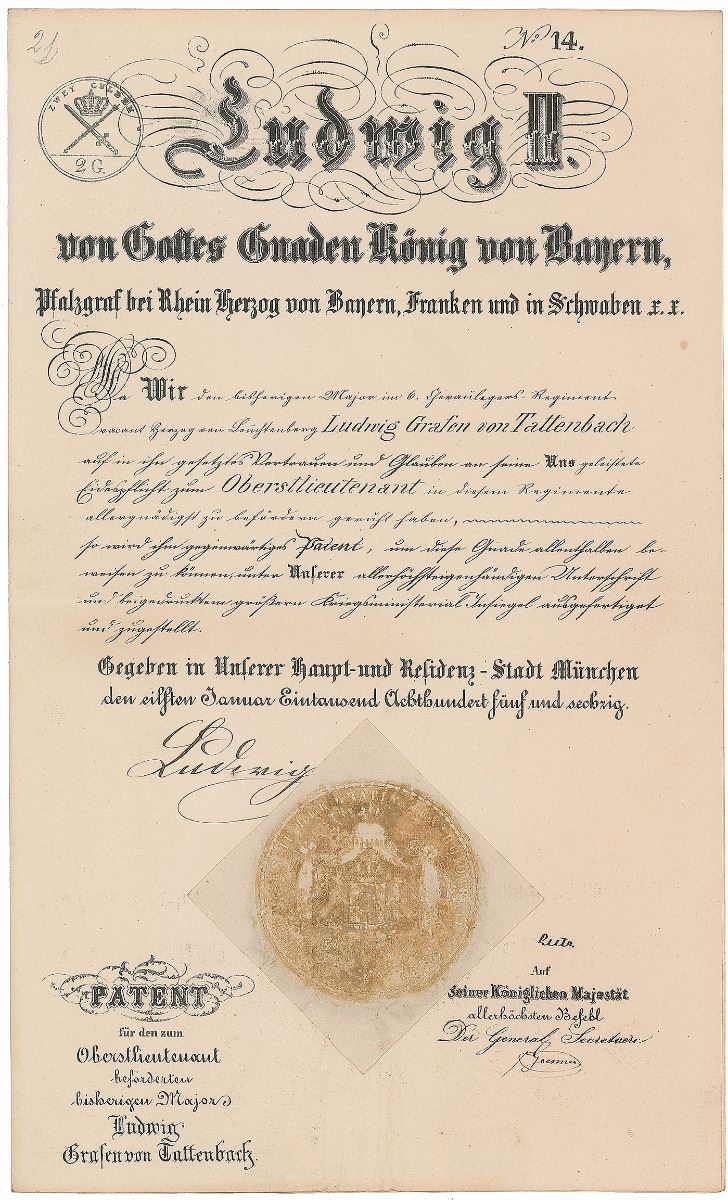 21
No 14.
ZWEY GULDEN
2 G.
Ludwig II.
von Gottes Gnaden König von Bayern,
Pfalzgraf bei Rhein Herzog von Bayern, Franken und in Schwaben x.x.
Da Wir den bisherigen Major im 6. Chevaulegers-Regiment
vacant Herzog von Leuchtenberg Ludwig Grafen von Tattenbach
auf in ihn gesetztes Vertrauen und Glauben an seine Uns geleistete
Eidespflicht zum Oberstlieutenant in diesem Regimente
allergnädigst zu befördern geruht haben,
so wird ihm gegenwärtiges Patent, um diese Gnade allenthalben be-
weisen zu können, unter Unserer allerhöchsteigenhändigen Unterschrift
und beigedrucktem größern Kriegsministerial-Insiegel ausgefertiget
und zugestellt.
Gegeben in Unserer Haupt-und Residenz-Stadt München
den eilften Januar Eintausend Achthundert fünf und sechzig.
Ludwig
Auf
Seiner Königlichen Majestät
allerhöchsten Befehl
Der General Secretaire:
PATENT
für den zum
Oberstlieutenant
beförderten
bisherigen Major
Ludwig
Grafen von Tattenbach.